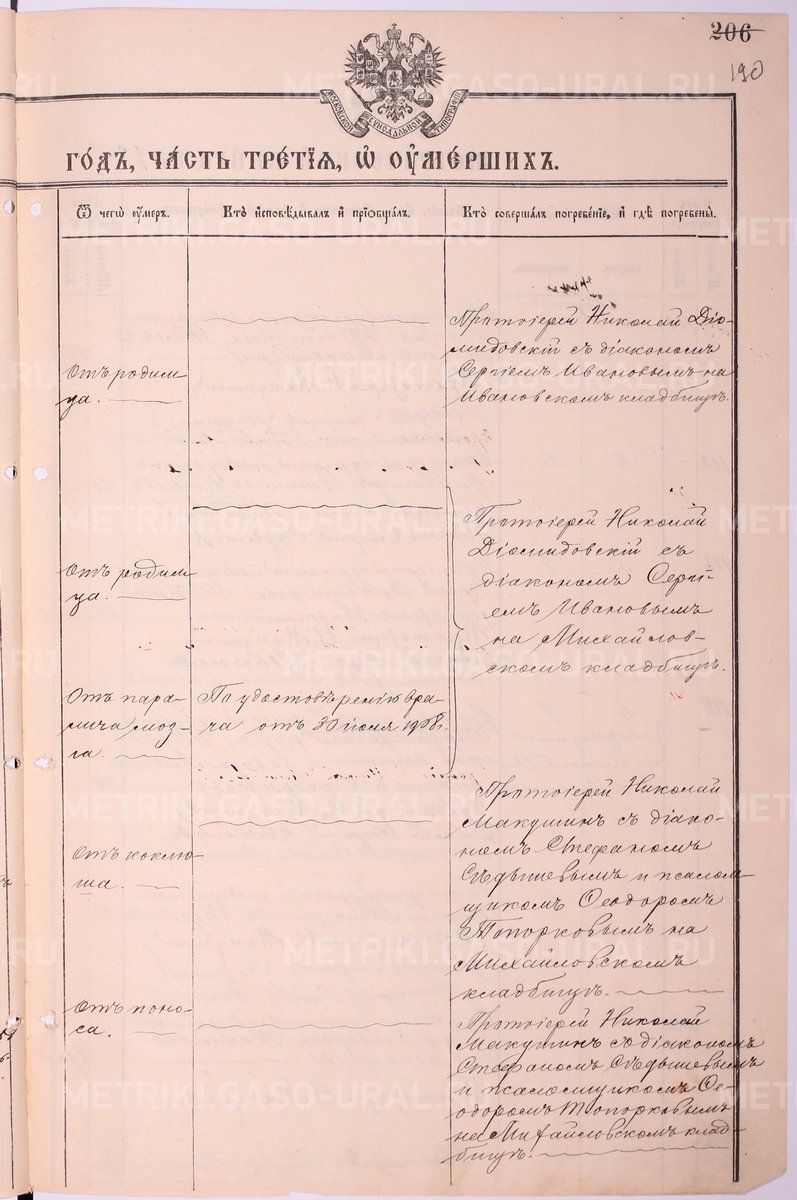 206
190
METRIKI.GASO-URAL.RU
МОСКОВСКОЙ СѴНОДАЛЬНОЙ ТИПОГРАФІИ
го́дъ, ча́сть тре́тїѧ, ѡ҆ ᲂу҆ме́ршихъ.
Ѿ чегѡ̀ ᲂу҆́меръ.
Кто̀ и҆сповѣ́дывалъ и҆ прїѡбща́лъ.
Кто̀ соверша́лъ погребе́нїе, и҆ гдѣ̀ погребены̀.
Отъ родим
ца.
Протоіерей Николай Діо-
мидовскій съ діакономъ
Сергіемъ Ивановымъ на
Ивановскомъ кладбищѣ.
Отъ родим
ца.
Протоіерей Николай
Діомидовскій съ
діакономъ Сергі-
емъ Ивановымъ
на Михайлов-
скомъ кладбищѣ.
Отъ пара-
лича моз-
га.
По удостовѣренію вра-
ча отъ 30 іюля 1908 г.
Отъ коклю-
ша.
Протоіерей Николай
Макушинъ съ діако-
номъ Стефаномъ
Сѣдышевымъ и псалом-
щикомъ Ѳеодоромъ
Топорковымъ на
Михайловскомъ
кладбищѣ.
Отъ поно-
са.
Протоіерей Николай
Макушинъ съ діакономъ
Стефаномъ Сѣдышевымъ
и псаломщикомъ Ѳе-
одоромъ Топорковымъ
на Михайловскомъ клад-
бищѣ.